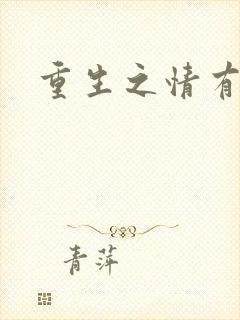 重生之情有
青萍